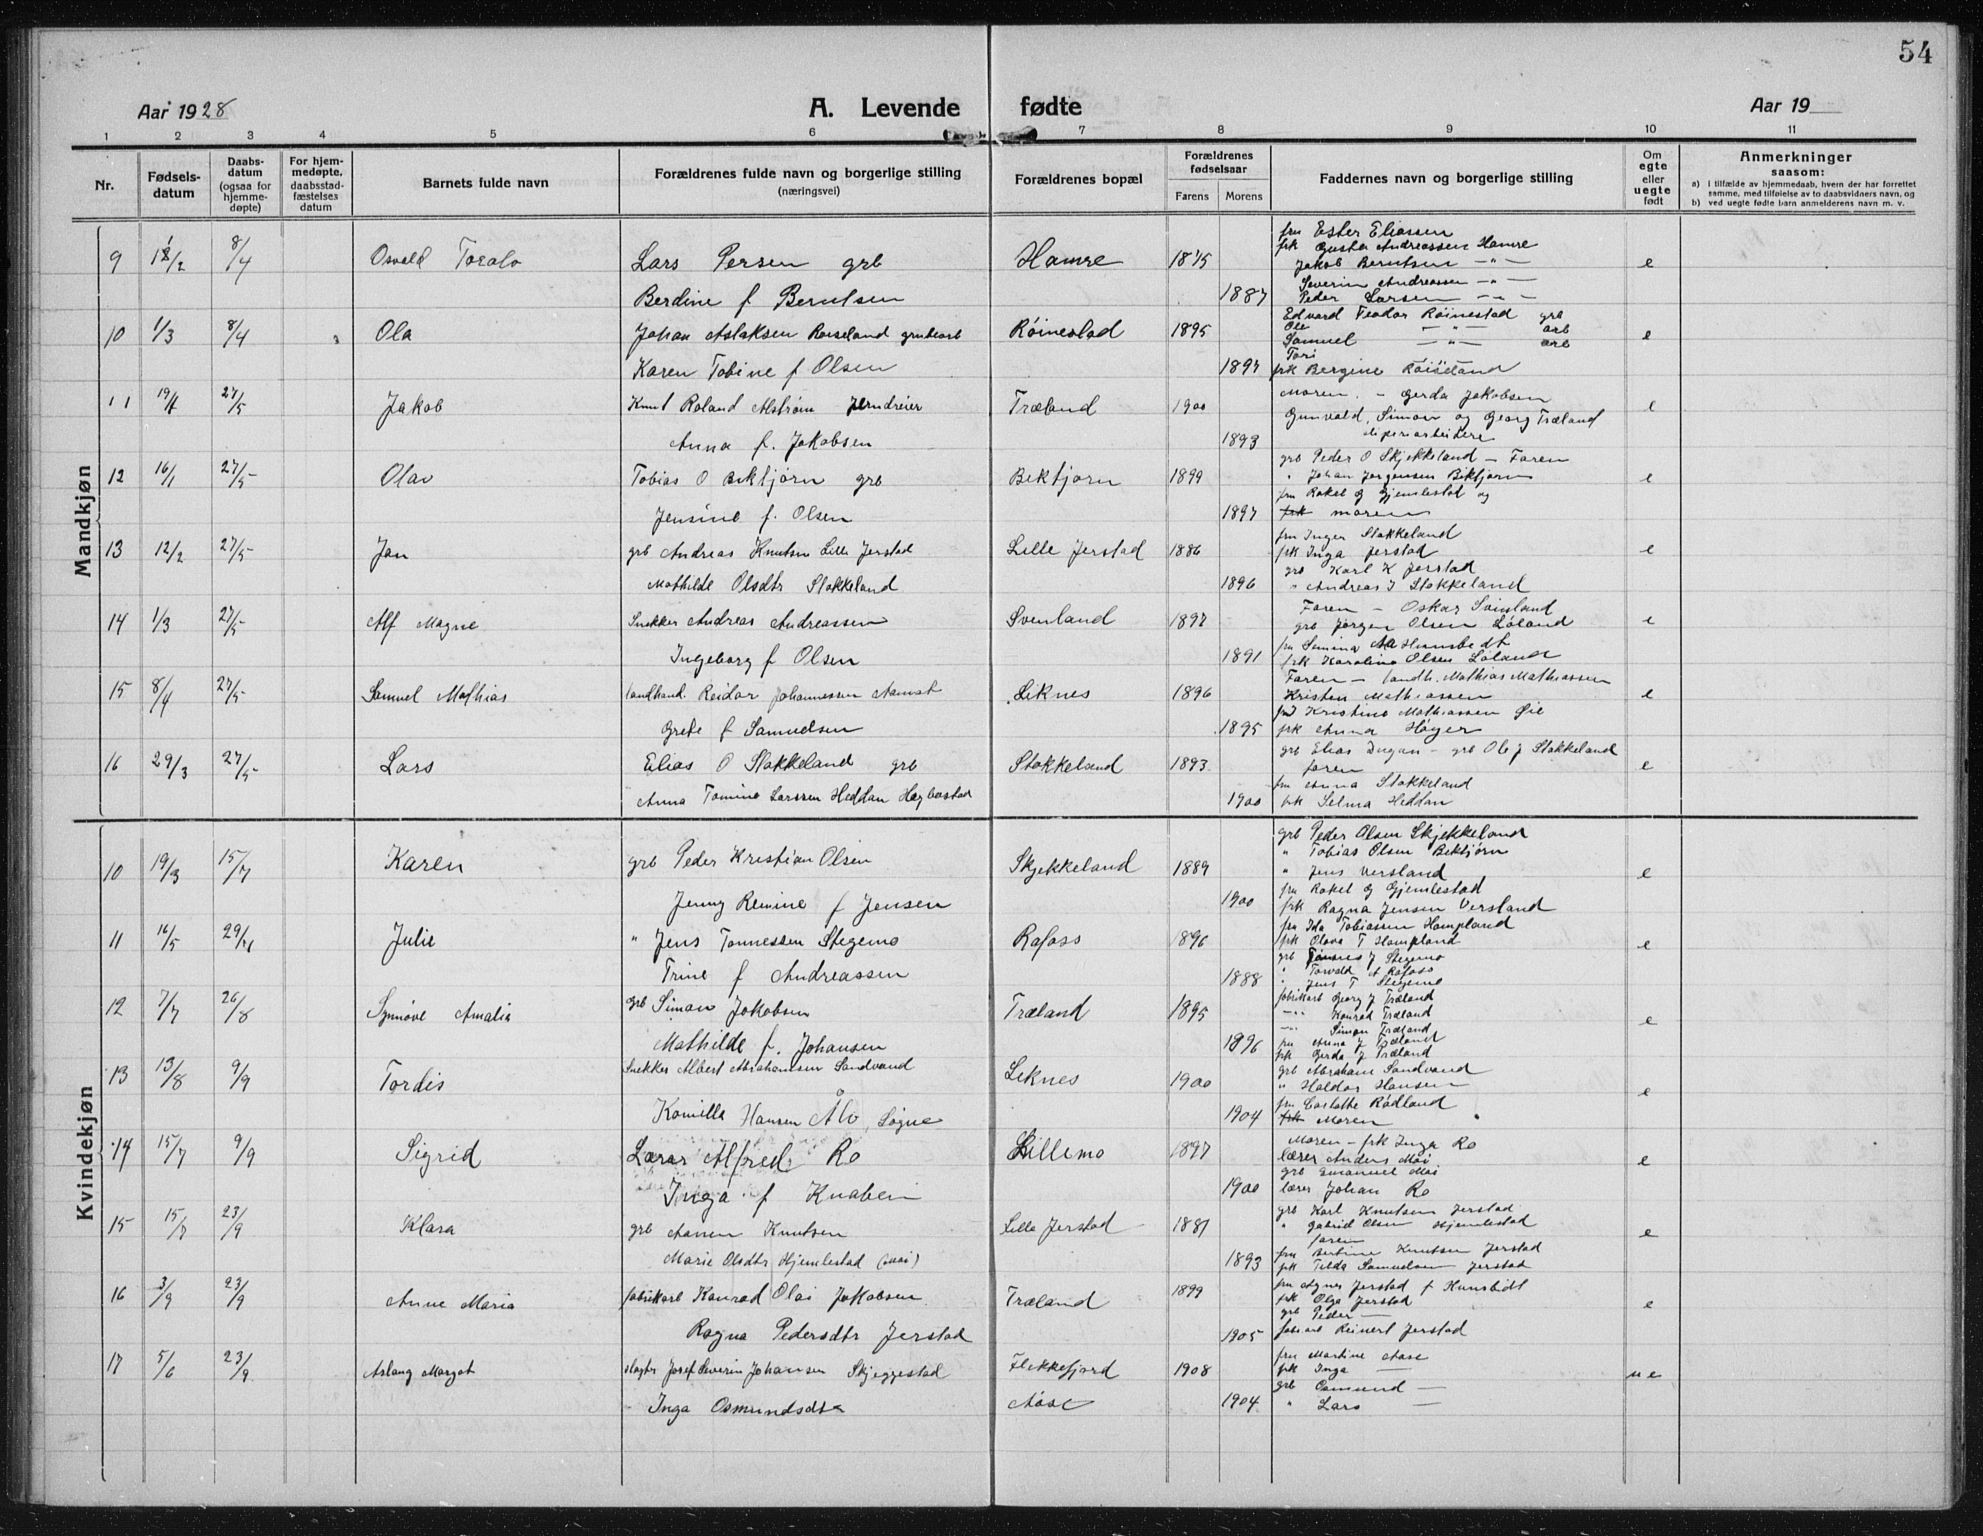 54
Aar 1928 A. Levende fødte Aar 19
1 2 3 4 5 6 7 8 9 10 11
Nr. Fødselsdatum Daabsdatum (ogsaa for hjemmedøpte) For hjemmedøpte, daabsstadfæstelses datum Barnets fulde navn Forældrenes fulde navn og borgerlige stilling (næringsvei) Forældrenes bopæl Forældrenes fødselsaar Farens Morens Faddernes navn og borgerlige stilling Om egte eller uegte født Anmerkninger saasom:
a) i tilfælde av hjemmedaab, hvem der har forrettet samme, med tilføielse av to daabsvidners navn, og
b) ved uegte fødte barn anmelderens navn m. v.
Mandkjøn
9 8/4 Osvald Toralv Lars Persen grb Hamre 1875 fru Ester Eliassen
frk Gusta Andreassen Hamre
Jakob Berntsen — " — e
Severin Andreassen — " —
Berdine f Berntsen 1887 Peder Larsen — " —
10 1/3 8/4 Ola Johan Aslaksen Røiseland grubearb Røinestad 1895 Edvard Teodor Røinestad grb
Ole — " — arb
Samuel — " — arb e
Tori
Karen Tobine f Olsen 1897 frk Bergine Røiseland
11 19/4 27/5 Jakob Knut Roland Alstrøm Jerndreier Træland 1900 Moren - Gerda Jakobsen
Gunvald, Simon og Georg Træland e
Anna f. Jakobsen 1893
12 16/1 27/5 Olav Tobias O Bektjørn grb Bektjørn 1899 grb Peder O Skjekkeland - Faren
" Johan Jørgensen Bektjørn e
fru Rakel G Gjemlestad og
Jensine f. Olsen 1897 frk moren
13 12/2 27/5 Jan grb Andreas Knutsen Lille Jerstad Lille Jerstad 1886 fru Inger Stokkeland
frk Inga Jerstad e
grb Karl K Jerstad
Mathilde Olsdtr Stokkeland 1896 " Andreas J Stokkeland
14 1/3 27/5 Alf Magne Snekker Andreas Andreassen Svenland 1897 Faren - Oskar Svinland
grb Jørgen Olsen Løland e
Ingeborg f Olsen 1891 fru Simina Aa Hunsbedt
frk Karoline Olsen Løland
15 8/4 27/5 Samuel Mathias landhand. Reidar Johannessen Aamot Liknes 1896 Faren - landh. Mathias Mathiassen
Kristen Mathiassen e
fru Kristine Mathiassen Øie
Grete f Samuelsen 1895 frk Anna Høyer
16 29/3 27/5 Lars Elias O Stokkeland grb Stokkeland 1893 grb Elias Dugan - grb Ole J Stokkeland
faren e
fru Anna Stokkeland
Anna Tomine Larssen Heddan Hægbostad 1900 frk Selma Heddan
Kvindekjøn
10 19/3 15/7 Karen grb Peder Kristian Olsen Skjekkeland 1889 grb Peder Olsen Skjekkeland
" Tobias Olsen Bektjørn
" Jens Versland e
fru Rakel G Gjemlestad
Jenny Remine f Jensen 1900 frk Ragna Jensen Versland
11 16/5 Julie " Jens Tønnessen Stegemo Rafoss 1896 fru Ida Tobiassen Hompland
frk Olava T Hompland e
grb Tønnes J Stegemo
Trine f Andreassen 1888 " Torvald A Rafoss
" Jens T Stegemo
12 7/7 26/8 Synnøve Amalia grb Simon Jakobsen Træland 1895 fabrikarb Georg J Træland
— " — Konrad Træland e
— " — Simon Træland
Mathilde f. Johansen 1896 fru Anna J Træland
frk Gerda J Træland
13 13/8 9/9 Tordis Snekker Albert Abrahamsen Sandvand Liknes 1900 grb Abraham Sandvand
" Haldor Hansen e
Kamilla Hansen Ålo, Søgne 1904 fru Carlotte Rødland
frk Moren
14 15/7 9/9 Sigrid Lærer Alfred Ro Lillemo 1897 Moren - frk Inga Ro
lærer Anders Moi e
grb Emanuel Moi
Inga f Knaben 1900 lærer Johan Ro
15 15/7 23/9 Klara grb Aanen Knutsen Lille Jerstad 1881 grb Karl Knutsen Jerstad
" Gabriel Olsen Hjemlestad e
faren
Marie Olsdtr Hjemlestad 1893 fru Bertine Knutsen Jerstad
frk Tilda Samuelsen Jerstad
16 3/9 23/9 Anne Maria fabrikarb Konrad Olai Jakobsen Træland 1899 fru Agnes Jerstad f Hunsbedt
frk Olga Jerstad e
grb Peder —
Ragna Pedersdtr Jerstad 1905 fabr.arb Reinert Jerstad
17 5/6 23/9 Aslaug Margot Josef Severin Johansen Skjeggestad Flekkefjord 1908 fru Martine Aase
frk Inga — ue
grb Osmund —
Inga Osmundsdtr Aase 1904 " Lars —